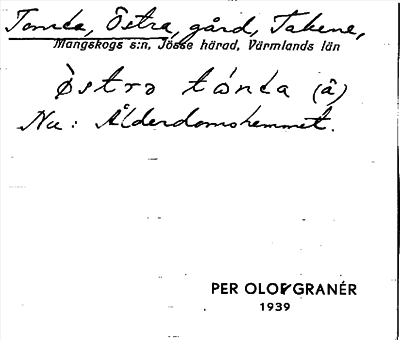 Tomta, Östra, gård, Takene,
Mangskogs s:n, Jösse härad, Värmlands län
Östra tomta (â)
Nu: Ålderdomshemmet.
PER OLOF GRANÉR
1939